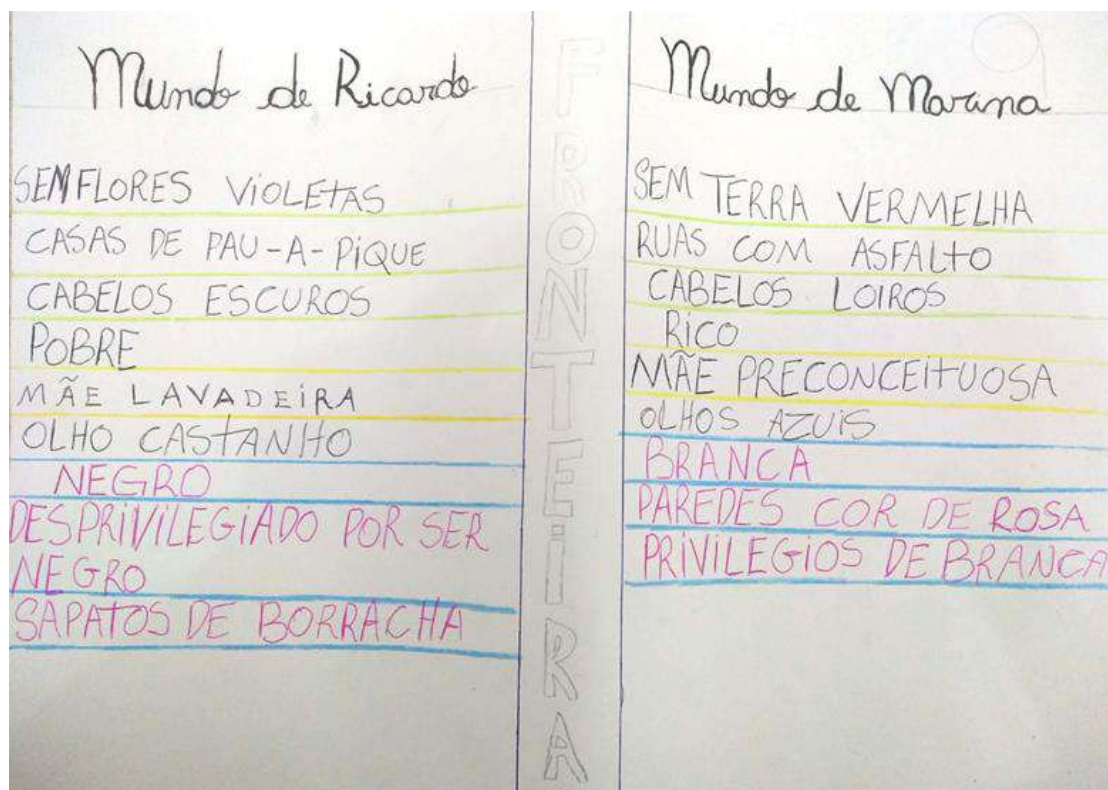 Mundo de Ricardo
SEM FLORES VIOLETAS
CASAS DE PAU-A-PIQUE
CABELOS ESCUROS
POBRE
MÃE LAVADEIRA
OLHO CASTANHO
NEGRO
DESPRIVILEGIADO POR SER
NEGRO
SAPATOS DE BORRACHA
FRONTEIRA
Mundo de Marina
SEM TERRA VERMELHA
RUAS COM ASFALTO
CABELOS LOIROS
RICO
MÃE PRECONCEITUOSA
OLHOS AZUIS
BRANCA
PAREDES COR DE ROSA
PRIVILEGIOS DE BRANCA